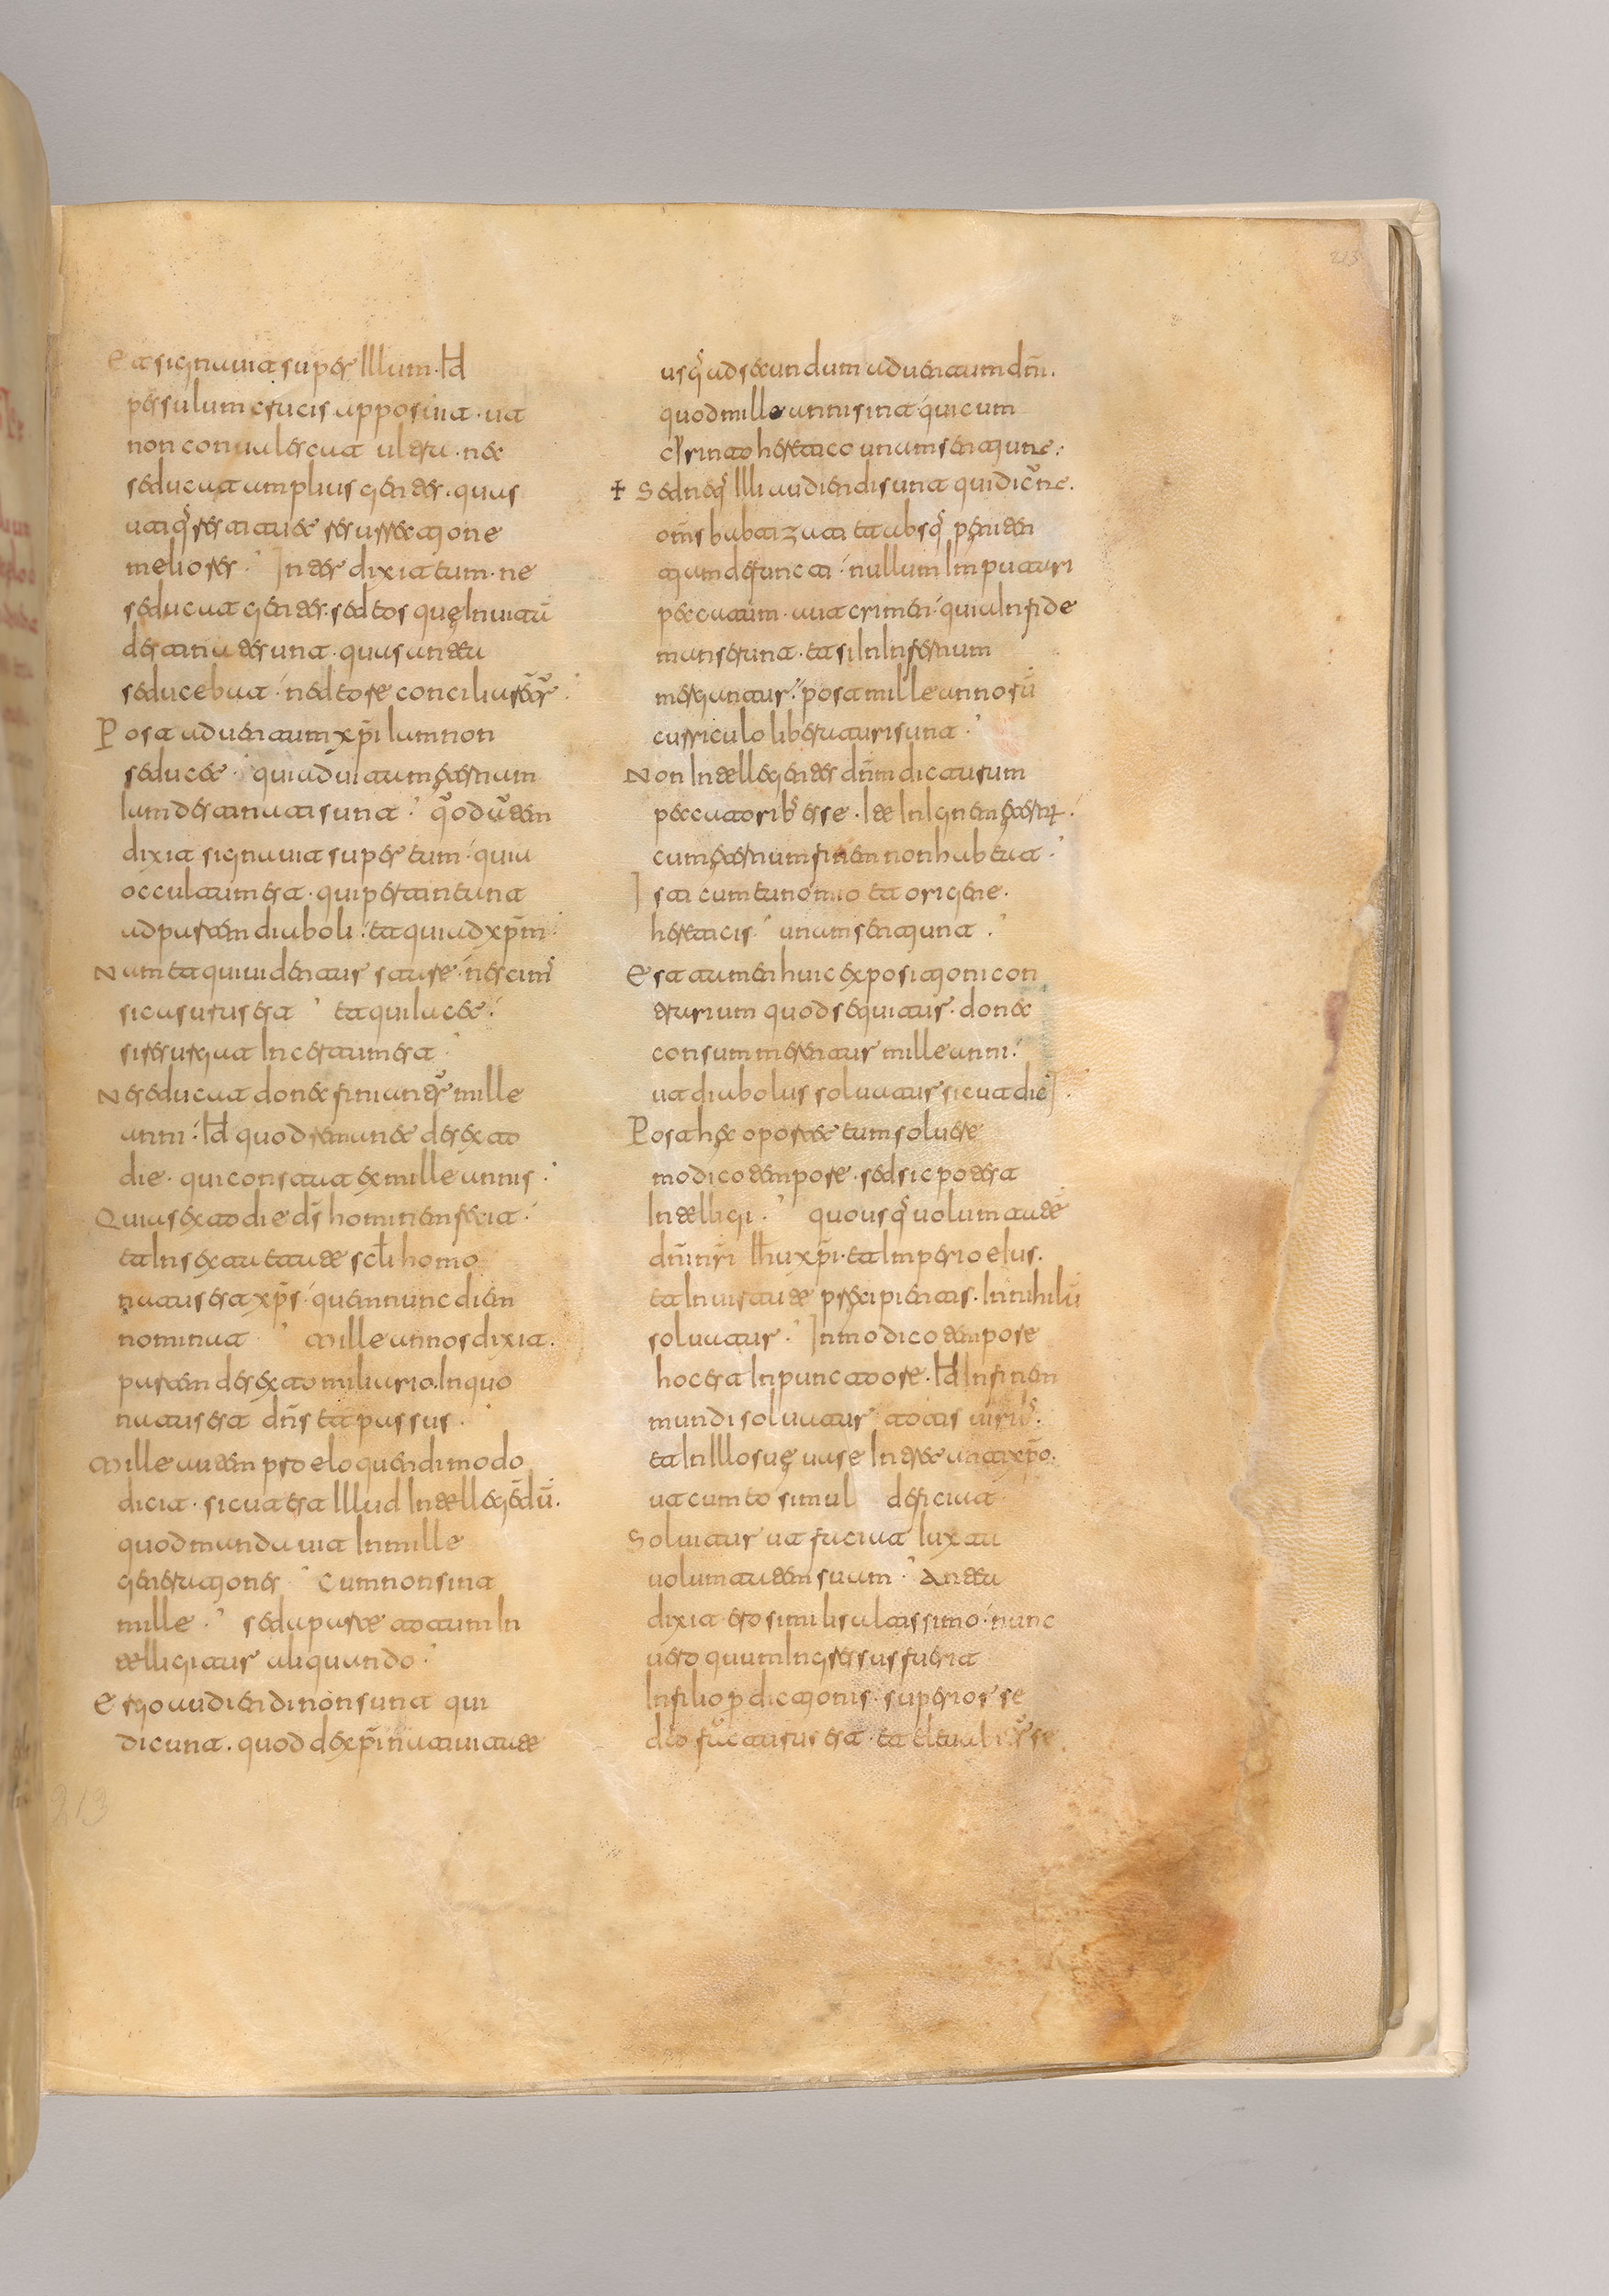 Et signauit super Illum. Id÷
per salum crucis apposuit. ut
non conualescat ultra. nec
seducat amplius gentes. quas
utiq̄ restituet resurrectione
meliores. Inter dixit eum. ne
seducat gentes. sed eos quę In uitā
destinati sunt. quas antea
seducebat. ne deo reconciliarētr̄
Post aduentum xp̄i Iam non
seducet. qui ad uitam ęternam
Iam destinati sunt. qd autem
dixit signauit super eum. quia
occultum est. qui pertineant
ad partem diaboli. et qui ad xp̄m
Num et qui uidentur stare. nescims̄
si casurus est et qui Iacet.
si resurgat Incertum est
Ne seducat donec finiantr̄ mille
anni. Id÷ quod remanet de sexto
die. qui constat ex mille annis.
Quia sexto die d̄s hominem fecit.
et In sexta etate scl̄i homo
natus est xp̄s. quem nunc diem
nominat Mille annos dixit.
partem de sexto miliario. In quo
natus est dn̄s et passus.
Mille autem pro eloquendi modo
dicit. sicut est Illud Intellegēdū.
quod mandauit In mille
generationes Cum non sint
mille. sed a parte totum In
telligitur aliquando
Ergo audiendi non sunt qui
dicunt. quod de xp̄i natiuitate
usq̄ ad secundum aduentum dn̄i.
quod mille anni sint. qui cum
cerinto heretico unum sentiunt.
+ Sed neq̄ Illi audiendi sunt qui dicūt.
om̄s babtizati et absq̄ peniten
tiam defuncti. nullum Imputari
peccatum. aut crimen. quia In fide
manserunt. et si In Infernum
mergantur. post mille annorū
curriculo liberaturi sunt.
Non Intellegentes dn̄m dicturum
peccatorib̄ esse. Ite In Ignem ęternum.
cum ęternum finem non habeat.
Isti cum eunomio et origene.
hereticis unum sentiunt.
Est autem huic expositioni con
trarium quod sequitur. donec
consummentur mille anni.
ut diabolus soluatur sicut dic̄
Post hęc oportet eum soluere
modico tempore. sed sic potest
Intelligi. quousq̄ uoluntate
dn̄i nr̄i Ih̄u xp̄i. et Imperio eIus.
et In uirtute pręcipientis. In nihilū
soluatur. In modico tempore
hoc est In puncto ore. Id÷ In finem
mundi soluatur totis uirib̄.
et In Illo suę uase Interet antixp̄o.
ut cum eo simul deficiat
Soluitur ut faciat Iuxta
uoluntatem suam. Antea
dixit ero similis altissimo. nunc
uero quum Ingressus fuerit
In filio p̄dictionis. superior se
deo facturus est. et eleuabitr̄ se.
213
213